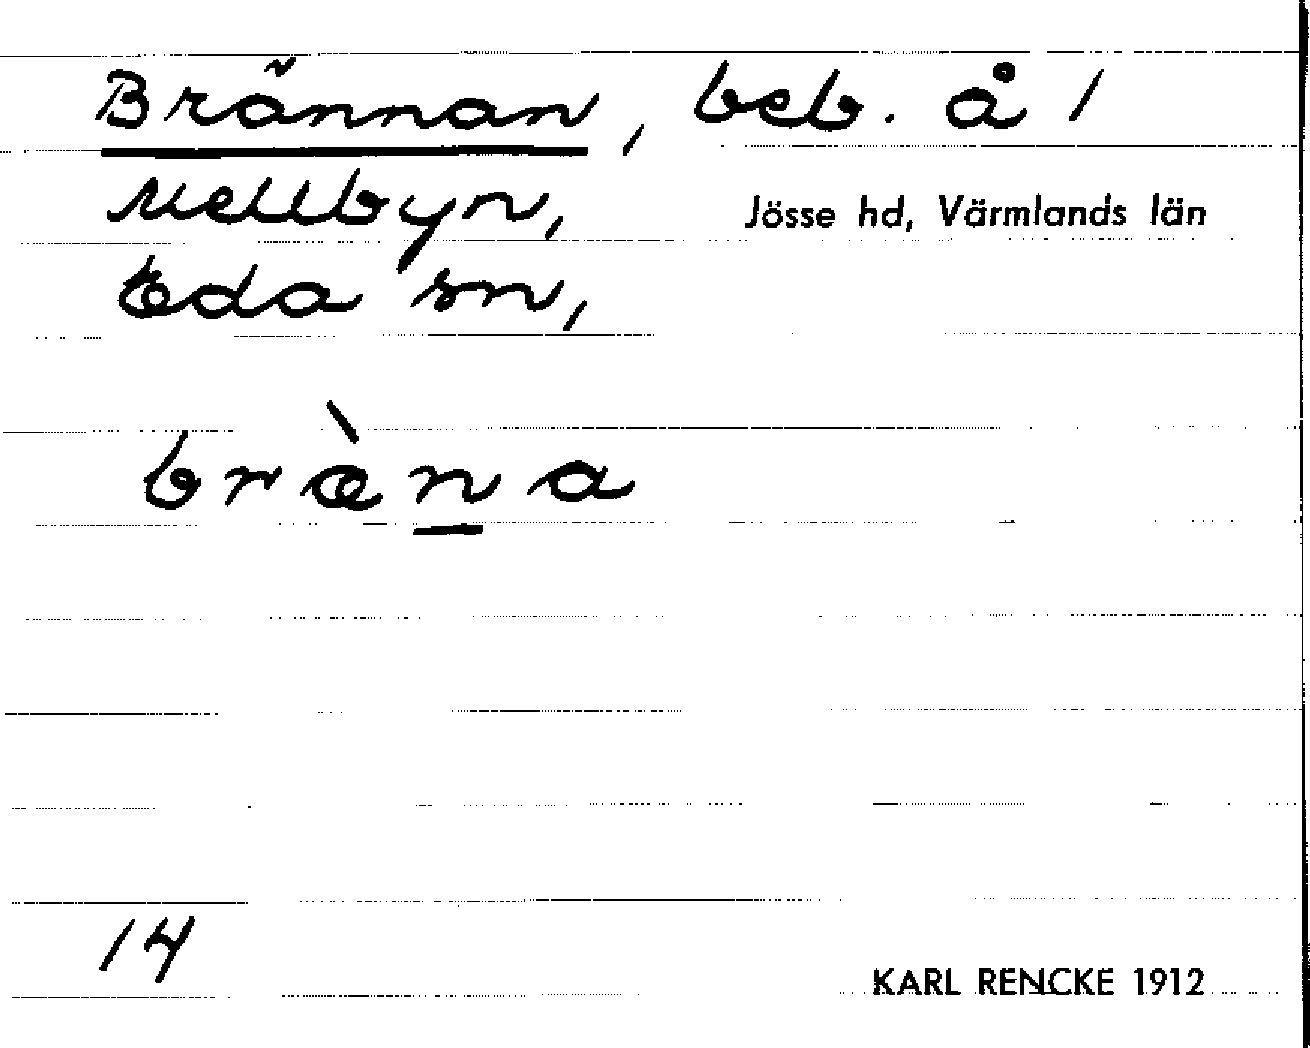 Brännan, beb. å 1
Mellbyn, Jösse hd, Värmlands län
Eda sn,
bræ̀na
14
KARL RENCKE 1912